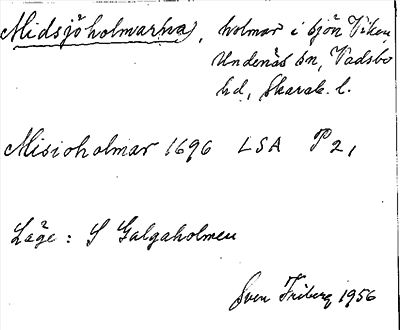 Midsjöholmarna, holmar i sjön Viken,
Undenäs sn, Vadsbo
hd, Skarab. l.
Misioholmar 1696 LSA P 2,
Läge: S Galgaholmen
Sven Friberg 1956